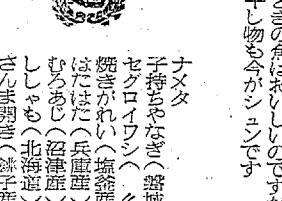 ときの角はおいしいのですが
干し物も今がシュンです
ナメタ
子持ちやなぎ（磐城
セグロイワシ（〃
焼きがれい（塩釜産
はたはた（兵庫産）
むろあじ（沼津産）
ししゃも（北海道）
さんま開き（銚子産